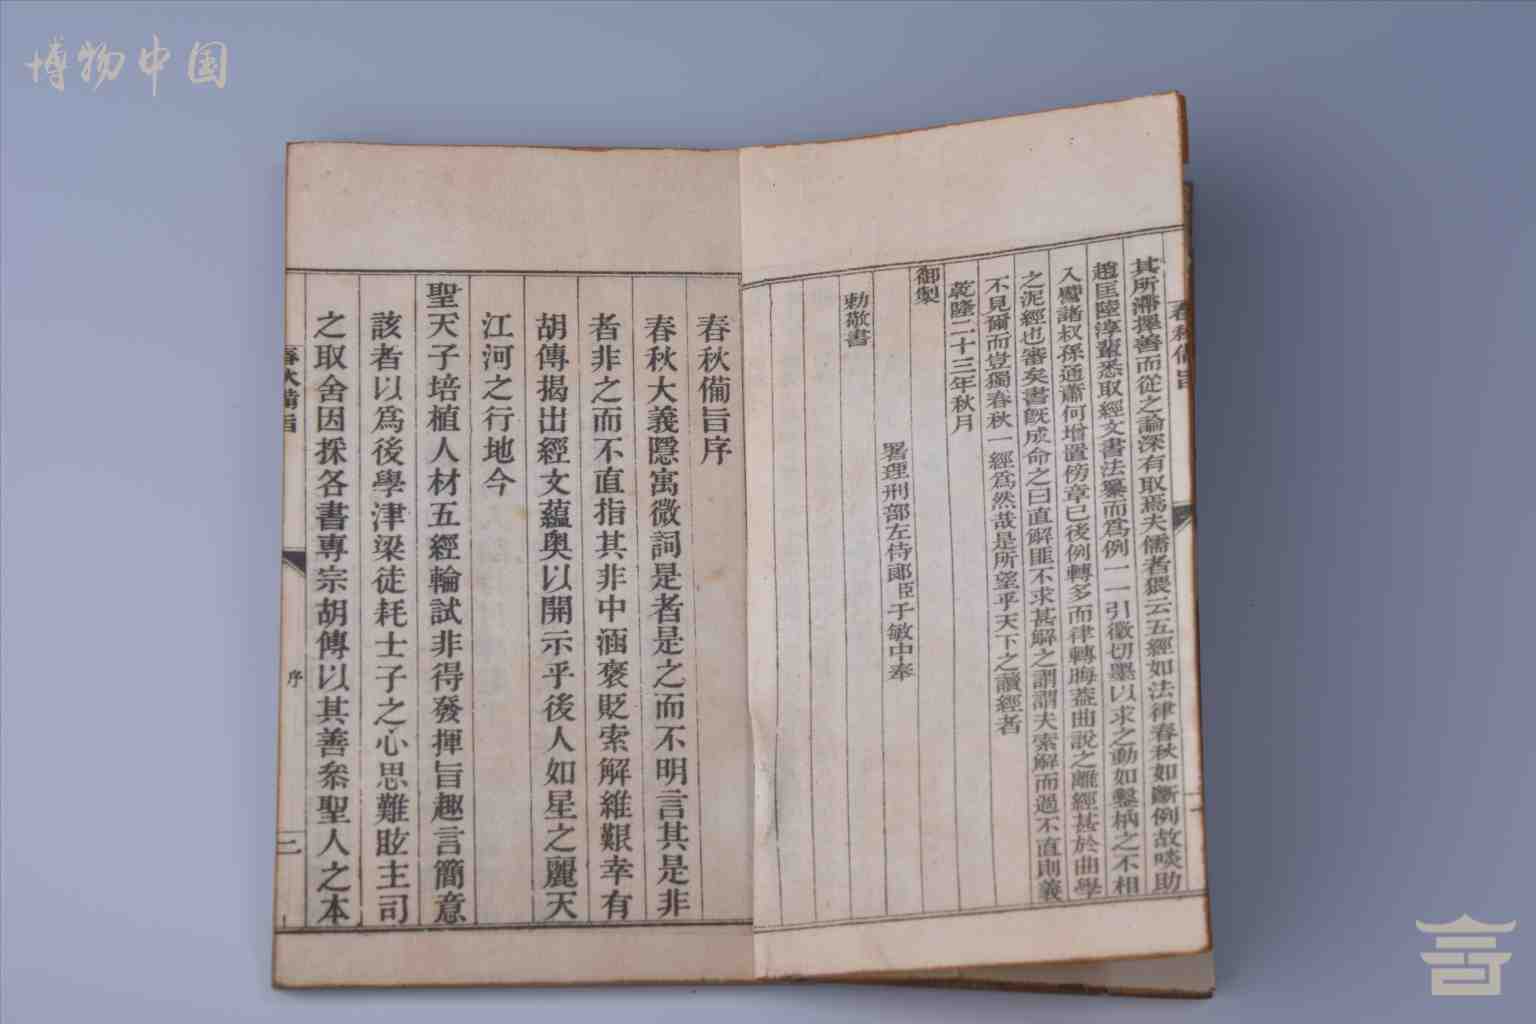 博物中国
春秋備旨
其所滯擇善而從之論深有取焉夫儒者猥云五經如法律春秋如斷例故啖助
趙匡陸淳輩悉取經文書法纂而爲例一一引徵切墨以求之動如鑿枘之不相
入譬諸叔孫通蕭何增置傍章已後例轉多而律轉晦蓋曲說之離經甚於曲學
之泥經也審矣書旣成命之曰直解匪不求甚解之謂謂夫索解而過不直則義
不見爾而豈獨春秋一經爲然哉是所望乎天下之讀經者
乾隆二十三年秋月
御製
署理刑部左侍郞臣于敏中奉
勅敬書
春秋備旨序
春秋大義隱寓微詞是者是之而不明言其是非
者非之而不直指其非中涵褒貶索解維艱幸有
胡傳揭出經文蘊奧以開示乎後人如星之麗天
江河之行地今
聖天子培植人材五經輪試非得發揮旨趣言簡意
該者以爲後學津梁徒耗士子之心思難眩主司
之取舍因採各書專宗胡傳以其善叅聖人之本
春秋備旨
序
二